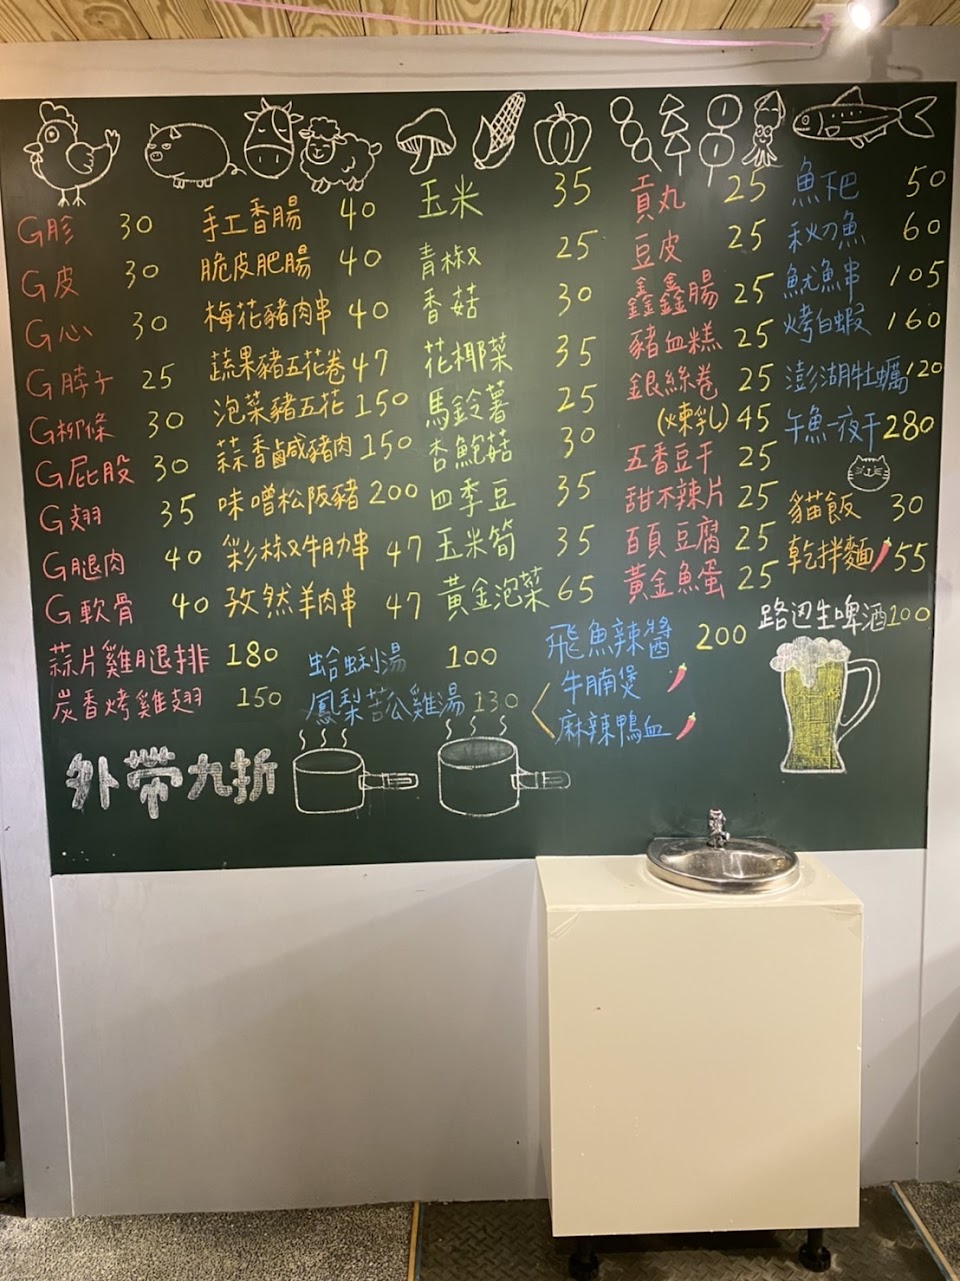 G胗 30
G皮 30
G心 30
G脖子 25
G柳條 30
G屁股 30
G翅 35
G腿肉 40
G軟骨 40
蒜片雞腿排 180
炭香烤雞翅 150
手工香腸 40
脆皮肥腸 40
梅花豬肉串 40
蔬果豬五花卷 47
泡菜豬五花 150
蒜香鹹豬肉 150
味噌松阪豬 200
彩椒牛肋串 47
孜然羊肉串 47
玉米 35
青椒 25
香菇 30
花椰菜 35
馬鈴薯 25
杏鮑菇 30
四季豆 35
玉米筍 35
黃金泡菜 65
蛤蜊湯 100
鳳梨苦瓜雞湯 130
貢丸 25
豆皮 25
鑫鑫腸 25
豬血糕 25
銀絲卷 25
(煉乳) 45
五香豆干 25
甜不辣片 25
百頁豆腐 25
黃金魚蛋 25
飛魚辣醬
牛腩煲
麻辣鴨血
200
魚下巴 50
秋刀魚 60
魷魚串 105
烤白蝦 160
澎湖牡蠣 120
午魚一夜干 280
貓飯 30
乾拌麵 55
路边生啤酒 100
外帶九折